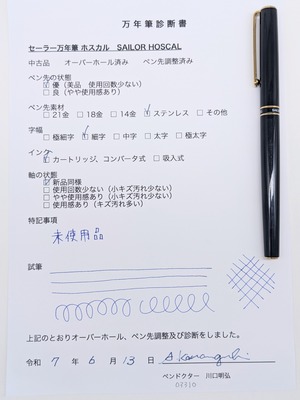 万年筆診断書
セーラー万年筆 ホスカル SAILOR HOSCAL
中古品 オーバーホール済み ペン先調整済み
ペン先の状態
☑優（美品 使用回数少ない）
□良（やや使用感あり）
ペン先素材
□21金 □18金 □14金 ☑ステンレス □その他
字幅
□極細字 ☑細字 □中字 □太字 □極太字
インク
☑カートリッジ、コンバータ式 □吸入式
軸の状態
☑新品同様
□使用回数少ない（小キズ汚れ少ない）
□やや使用感あり（小キズ汚れ少ない）
□使用感あり（キズ汚れ多い）
特記事項
未使用品
試筆
上記のとおりオーバーホール、ペン先調整及び診断をしました。
令和 7 年 6 月 13 日
ペンドクター 川口明弘